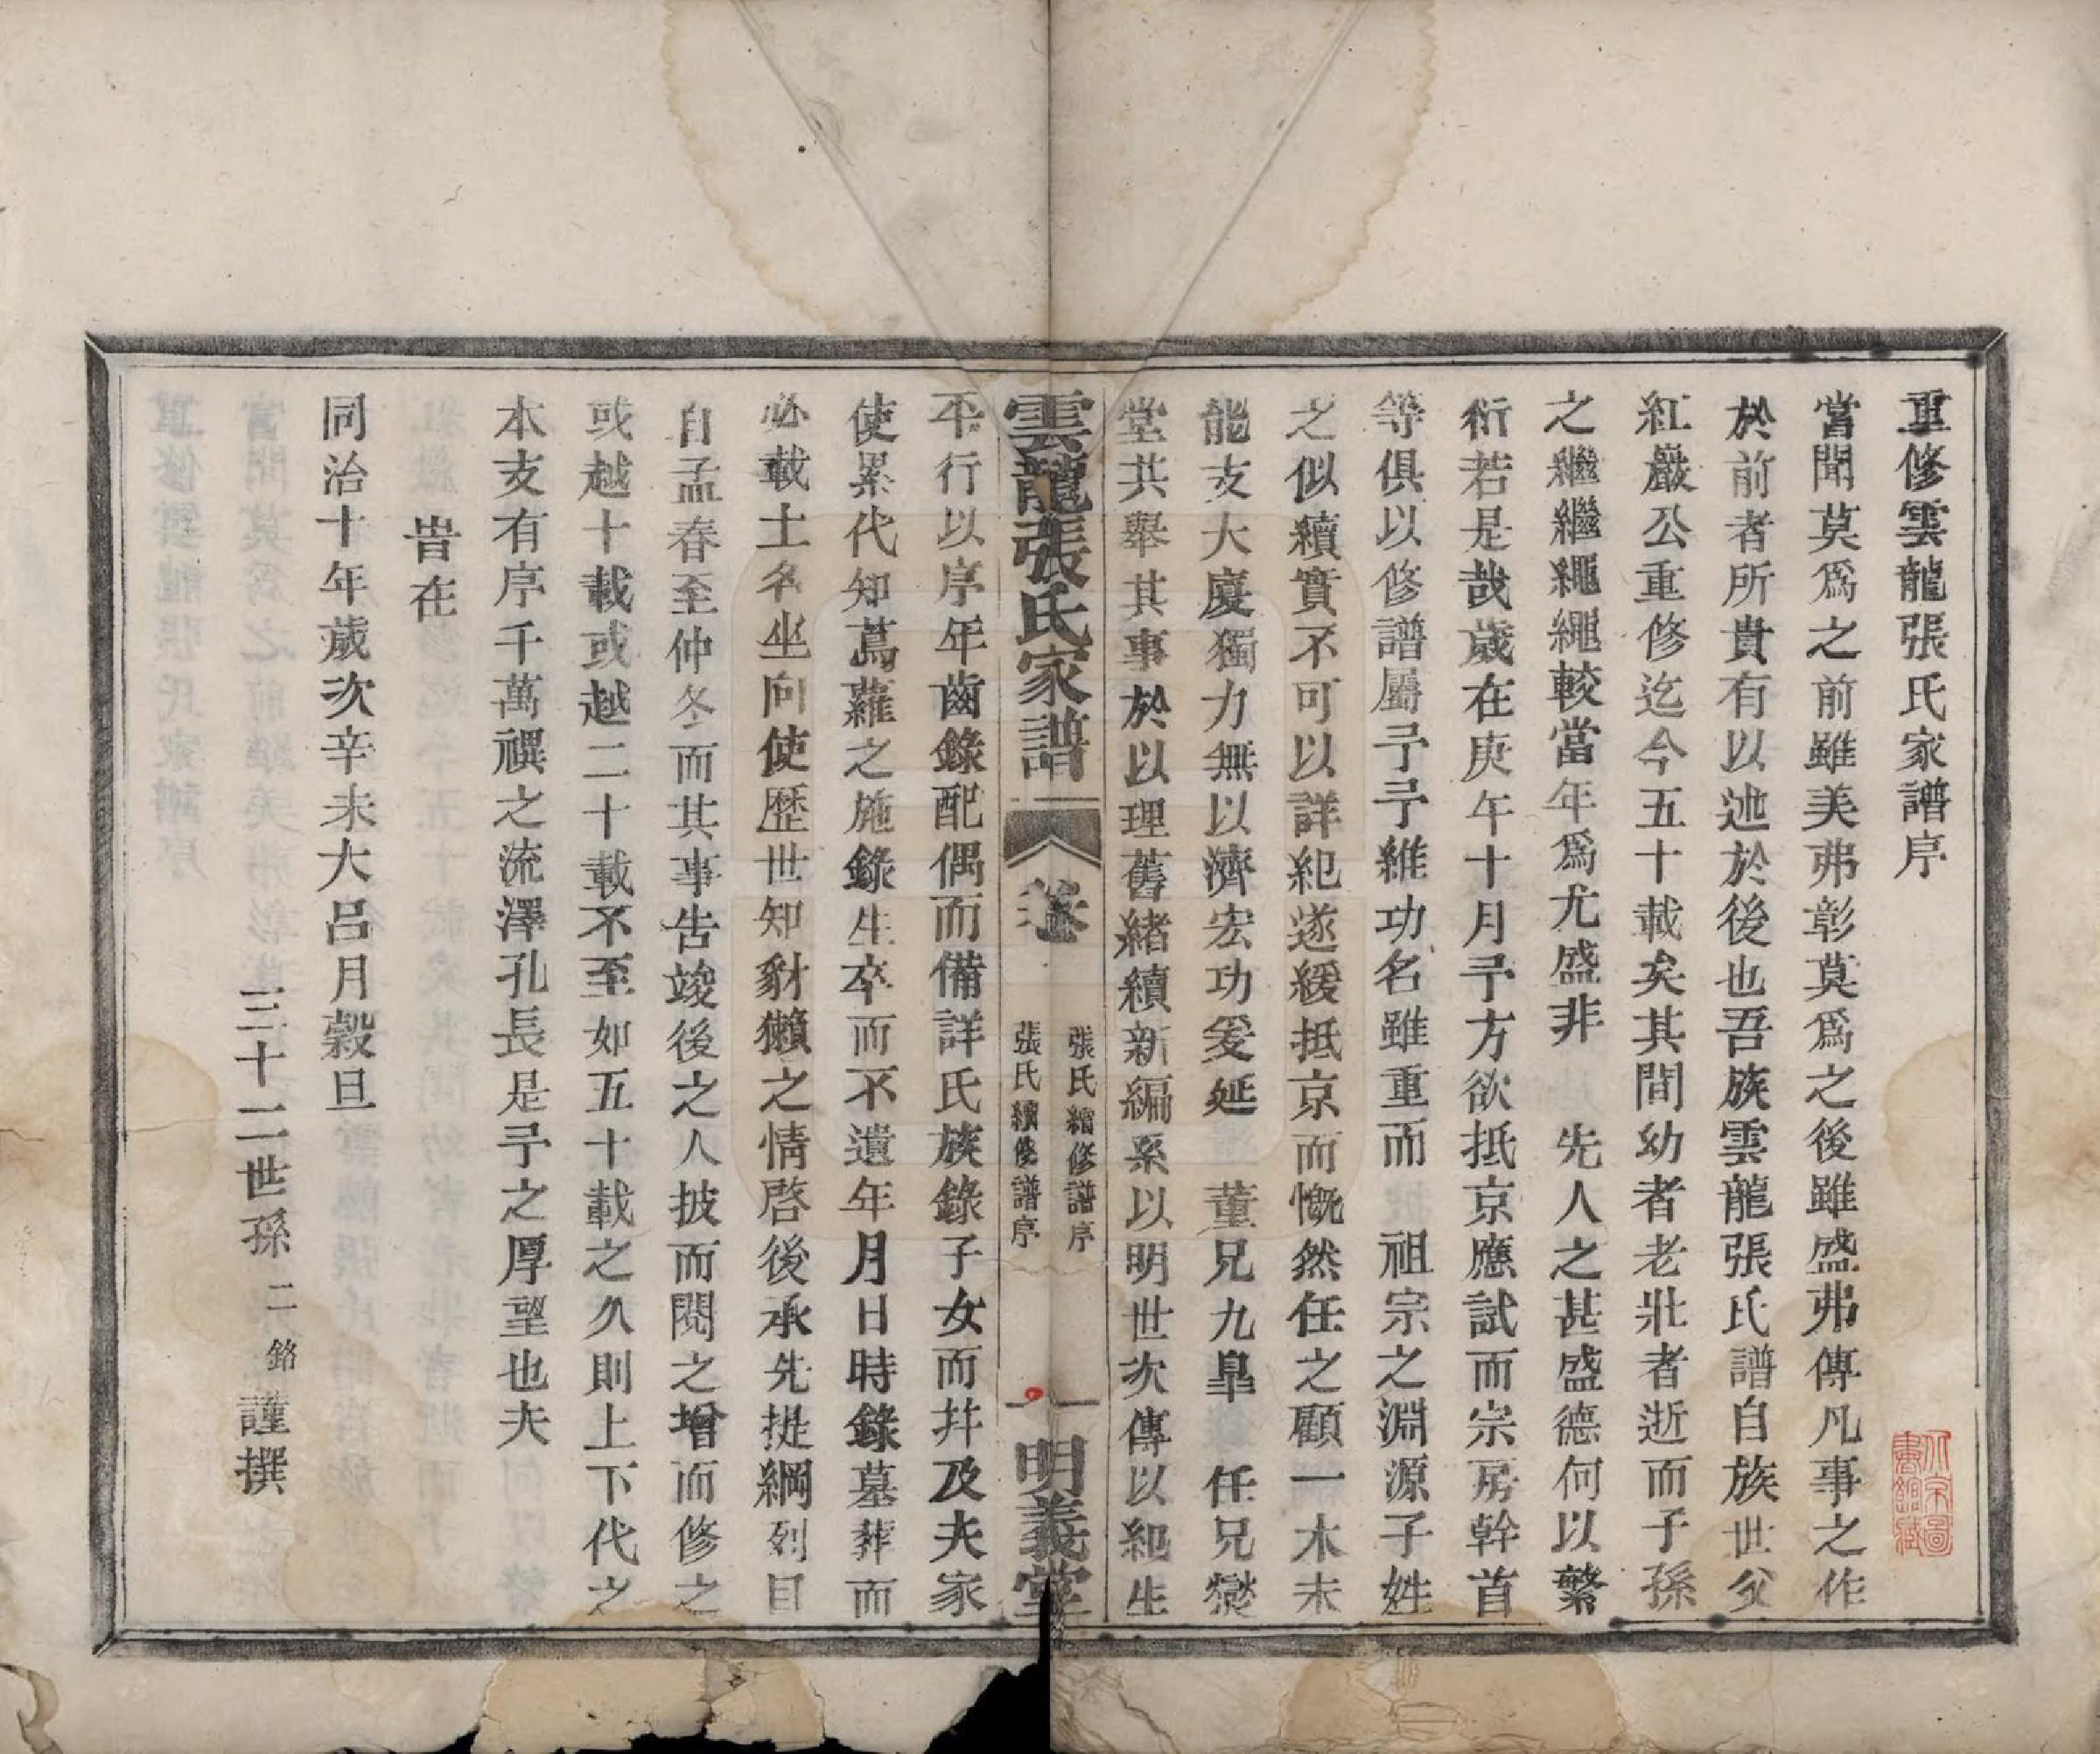 重修雲龍張氏家譜序
嘗聞莫爲之前雖美弗彰莫爲之後雖盛弗傳凡事之作
於前者所貴有以述於後也吾族雲龍張氏譜自族世父
紅巖公重修迄今五十載矣其間幼者老壯者逝而子孫
之繼繼繩繩較當年爲尤盛非　先人之甚盛德何以繁
衍若是哉歲在庚午十月予方欲抵京應試而宗房幹首
等俱以修譜屬予予維功名雖重而　祖宗之淵源子姓
之似續實不可以詳紀遂緩抵京而慨然任之顧一木未
能支大廈獨力無以濟宏功爰延　董兄九臯　任兄爕
堂共舉其事於以理舊緒續新編系以明世次傳以紀生
雲龍張氏家譜
卷
張氏續修譜序
張氏續修譜序
一
明義堂
平行以序年齒錄配偶而備詳氏族錄子女而并及夫家
使累代知蔦蘿之施錄生卒而不遺年月日時錄墓葬而
必載土名坐向使歷世知豺獺之情啓後承先提綱列目
自孟春至仲冬而其事告竣後之人披而閱之增而修之
或越十載或越二十載不至如五十載之久則上下代之
本支有序千萬禩之流澤孔長是予之厚望也夫
峕在
同治十年歲次辛未大呂月榖旦
三十二世孫二銘謹撰